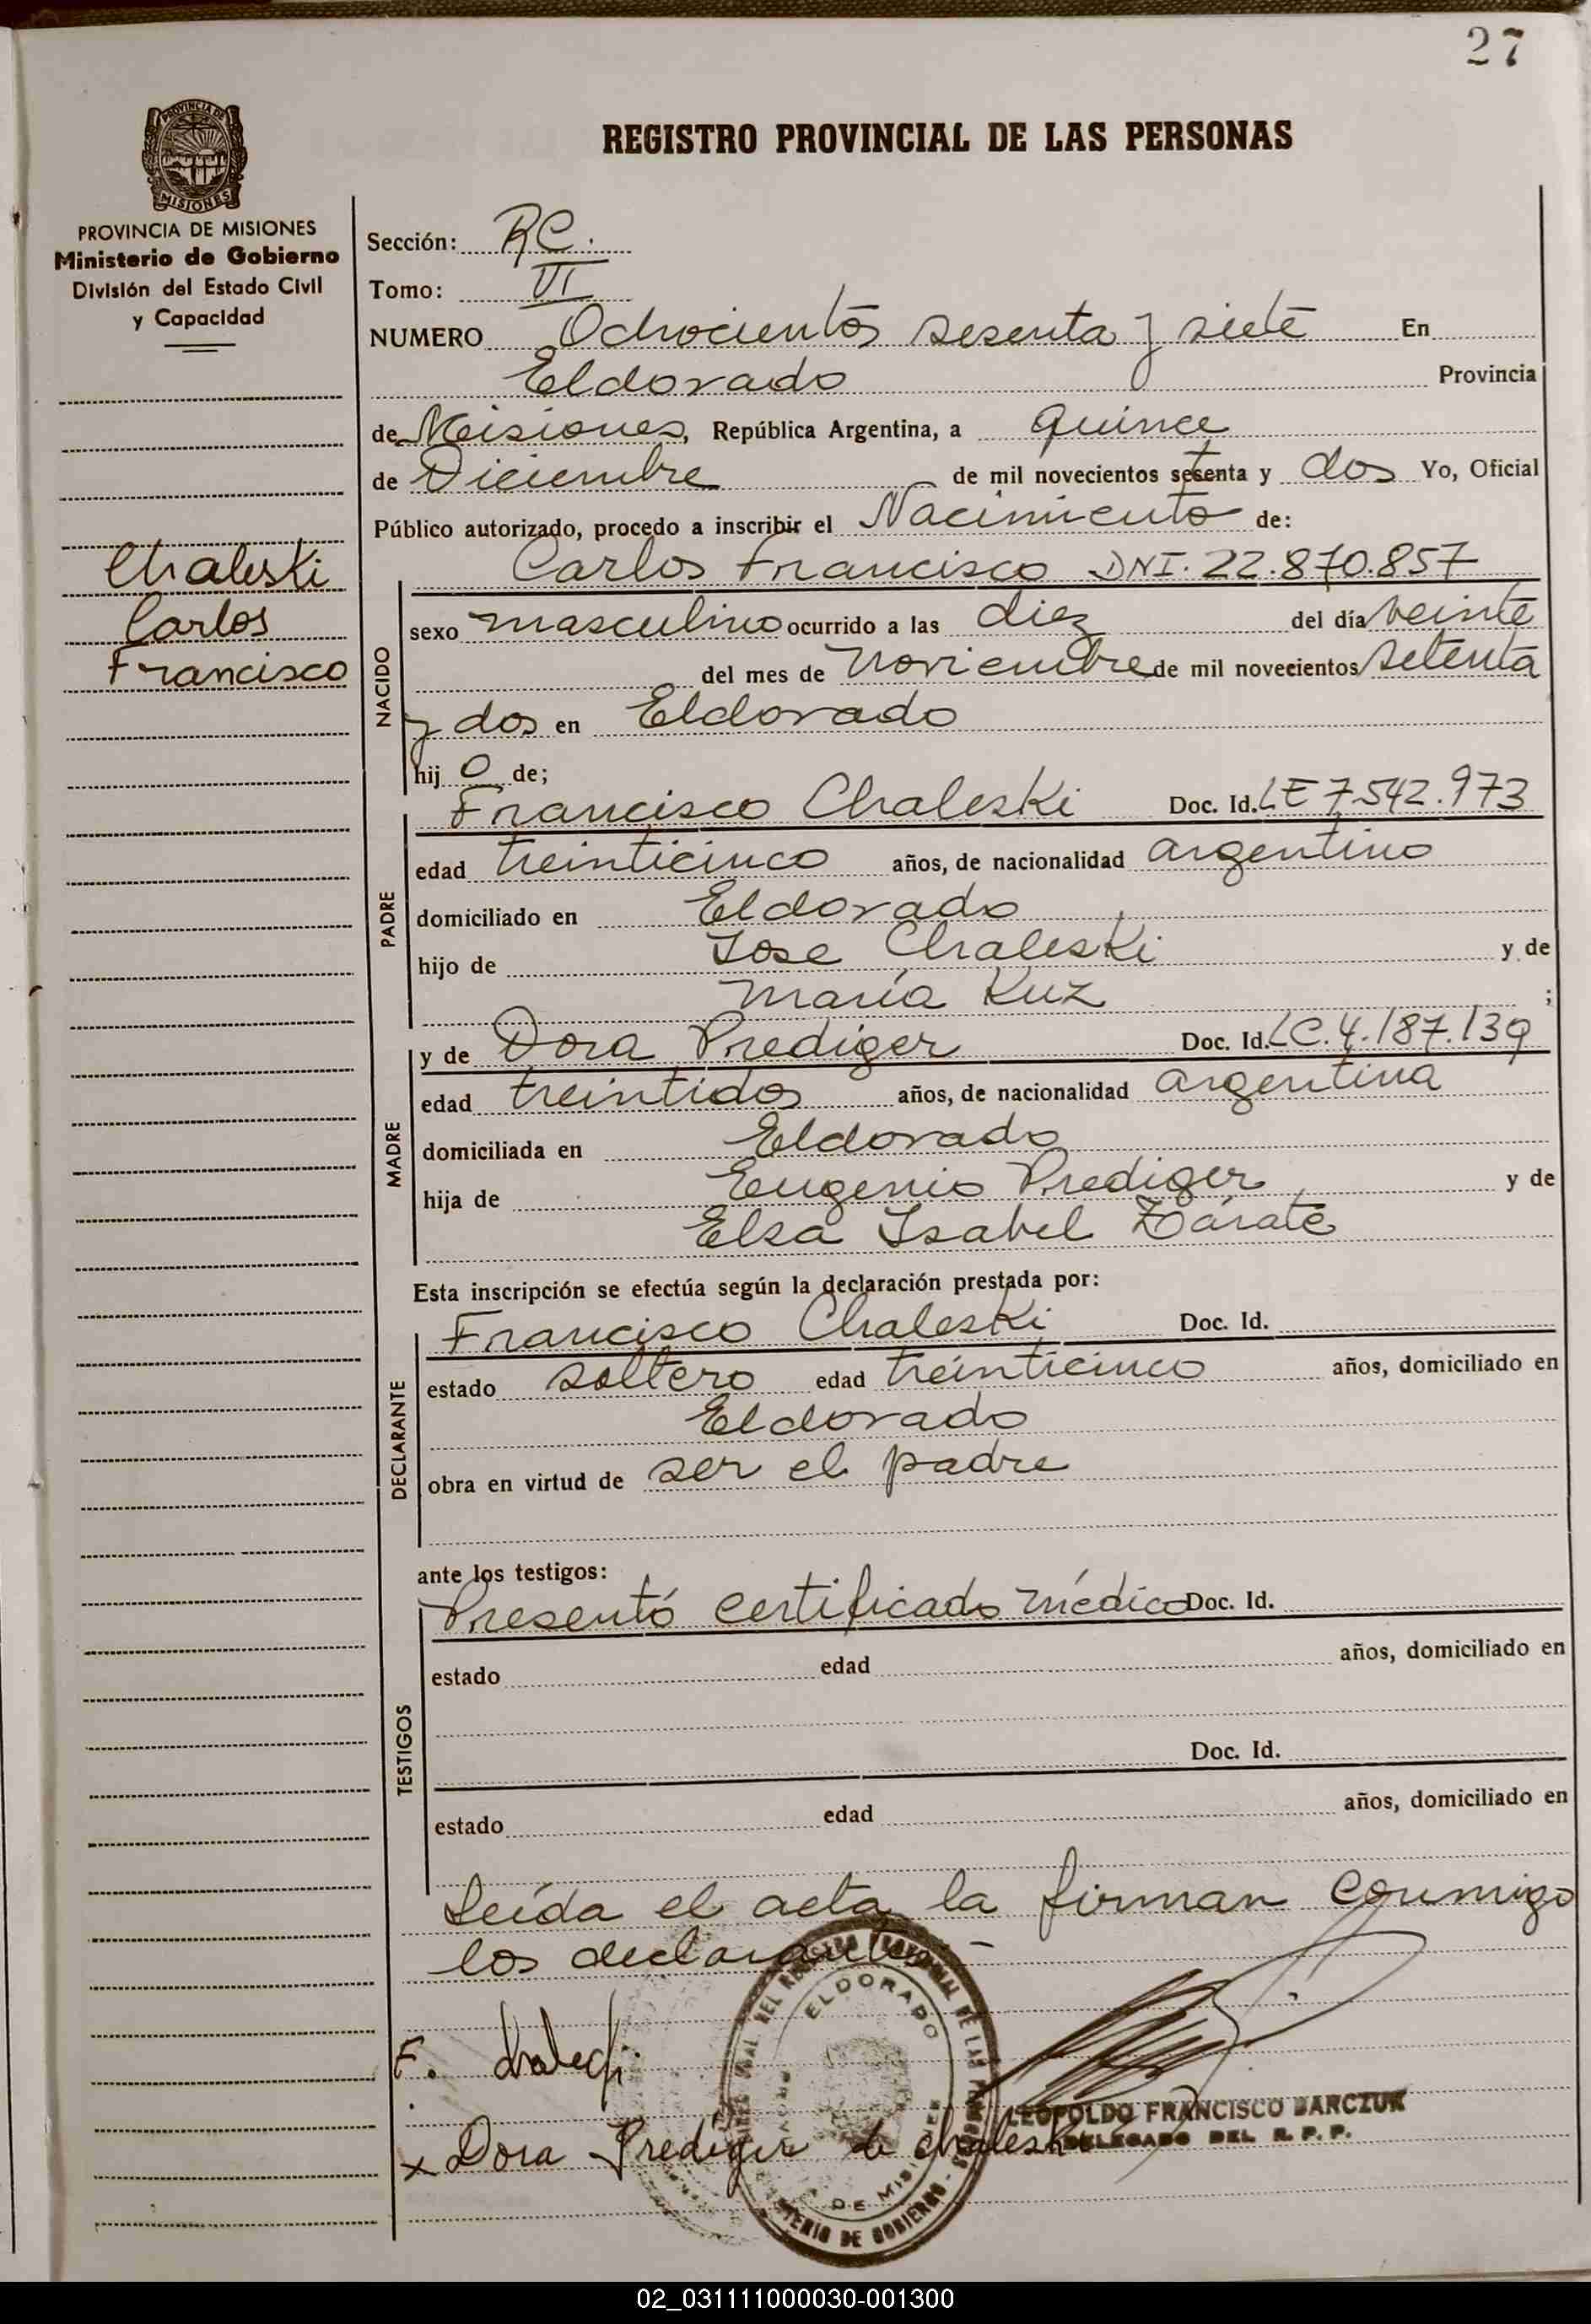 27
PROVINCIA DE
MISIONES
PROVINCIA DE MISIONES
Ministerio de Gobierno
División del Estado Civil
y Capacidad
Chaleski
Carlos
Francisco
REGISTRO PROVINCIAL DE LAS PERSONAS
Sección: RC.
Tomo: VI
NUMERO Ochocientos sesenta y siete En
Eldorado Provincia
de Misiones, República Argentina, a quince
de Diciembre de mil novecientos setenta y dos Yo, Oficial
Público autorizado, procedo a inscribir el Nacimiento de:
NACIDO
Carlos Francisco DNI. 22.870.857
sexo masculino ocurrido a las diez del día veinte
del mes de noviembre de mil novecientos setenta
y dos en Eldorado
hij o de;
PADRE
Francisco Chaleski Doc. Id. LE 7.542.973
edad treinticinco años, de nacionalidad argentino
domiciliado en Eldorado
hijo de Jose Chaleski y de
María Kuz ;
MADRE
y de Dora Prediger Doc. Id. LC. 4.187.139
edad treintidos años, de nacionalidad argentina
domiciliada en Eldorado
hija de Eugenio Prediger y de
Elsa Isabel Zárate
Esta inscripción se efectúa según la declaración prestada por:
DECLARANTE
Francisco Chaleski Doc. Id.
estado soltero edad treinticinco años, domiciliado en
Eldorado
obra en virtud de ser el padre
ante los testigos:
TESTIGOS
Presentó certificado médico Doc. Id.
estado edad años, domiciliado en
Doc. Id.
estado edad años, domiciliado en
Leída el acta la firman conmigo
los declarantes -
ELDORADO
F.
LEOPOLDO FRANCISCO BARCZUK
DELEGADO DEL R. P. P.
x Dora Prediger de Chaleski
DE MISIONES
MINISTERIO DE GOBIERNO
02_031111000030-001300